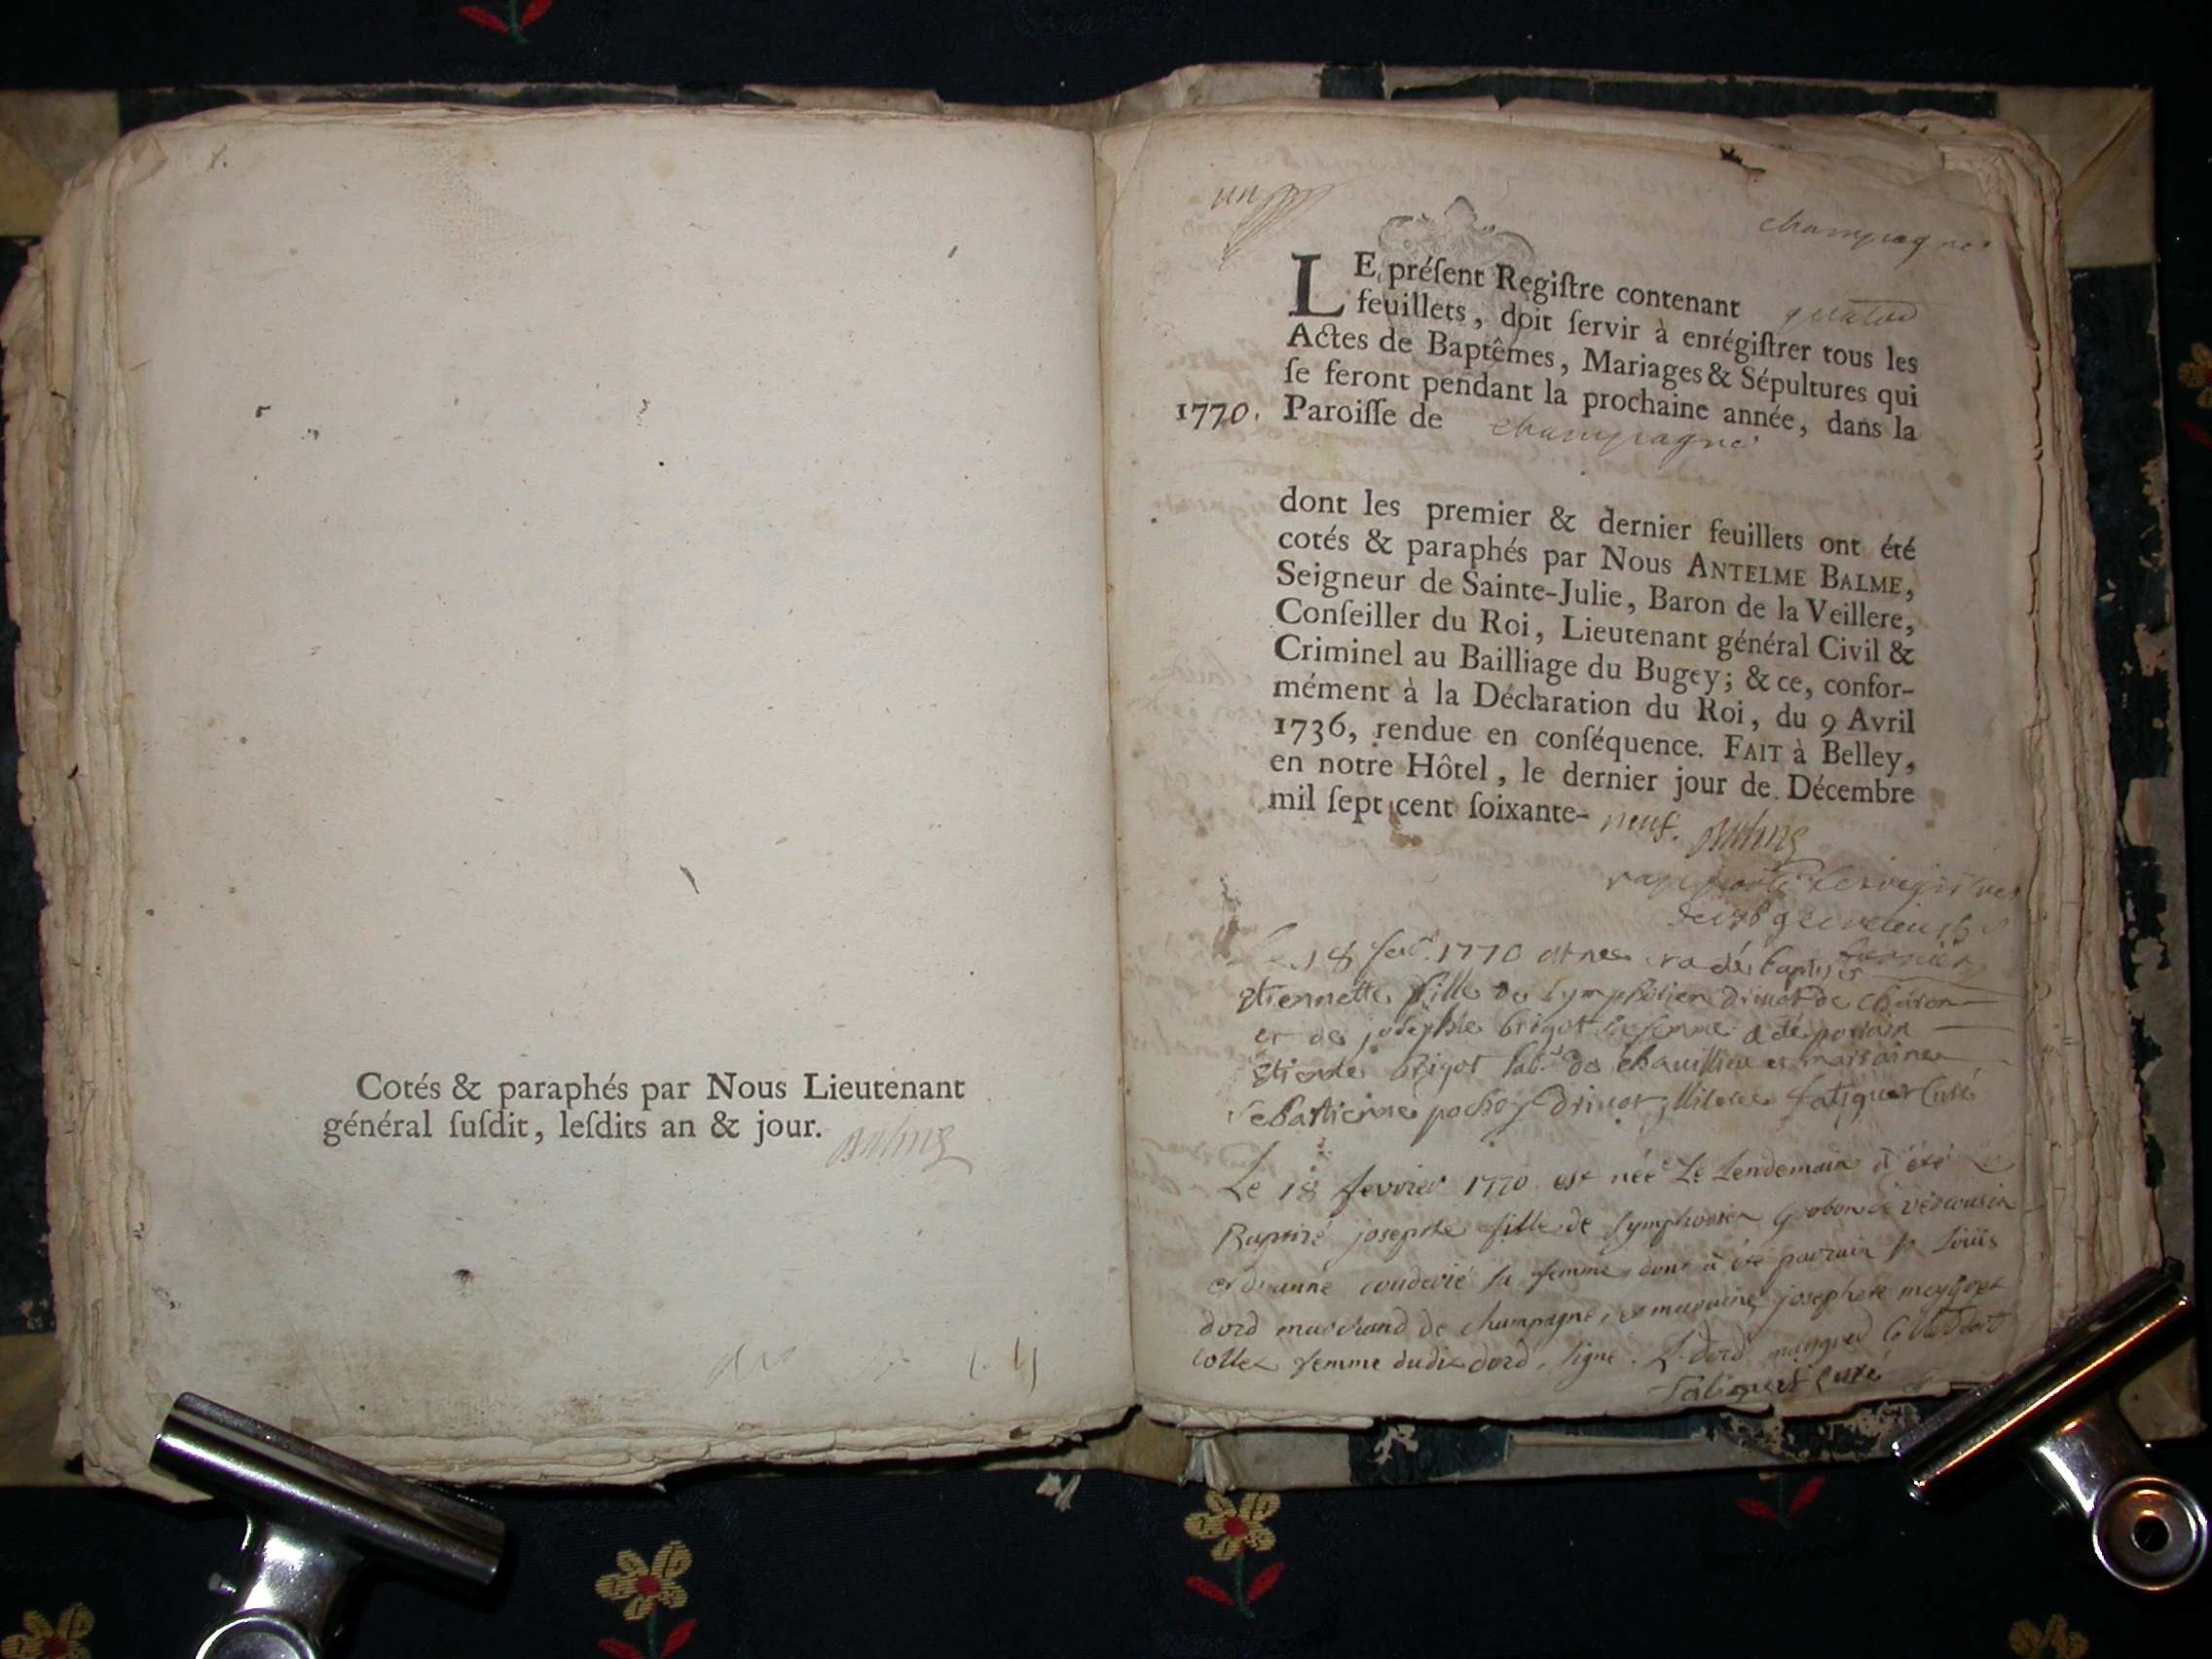 Cotés & paraphés par Nous Lieutenant
général ſuſdit, leſdits an & jour. Balme
un
champagne
LE préſent Regiſtre contenant quatre
feuillets, doit ſervir à enrégiſtrer tous les
Actes de Baptêmes, Mariages & Sépultures qui
ſe feront pendant la prochaine année, dans la
1770. Paroiſſe de champagne
dont les premier & dernier feuillets ont été
cotés & paraphés par Nous ANTELME BALME,
Seigneur de Sainte-Julie, Baron de la Veillere,
Conſeiller du Roi, Lieutenant général Civil &
Criminel au Bailliage du Bugey; & ce, confor-
mément à la Déclaration du Roi, du 9 Avril
1736, rendue en conſéquence. FAIT à Belley,
en notre Hôtel, le dernier jour de Décembre
mil ſept cent ſoixante- neuf. Balme
rapporté les registres
Le 18 1770 et née a été baptisée
Etiennette fille de Symphorien de
et de josephte brigot sa femme a été parain
brigot lab. de et marraine
Sebastienne fatiguet Curé
Le 18 fevrier 1770 est née Le Lendemain a été
Baptisé josephte fille de symphorien de
et d'anne sa femme, dont a été parrain Sr Loüis
dord marchand de champagne, et maraine josephte
femme dudit dord, signé. L. dord
fatiguet Curé